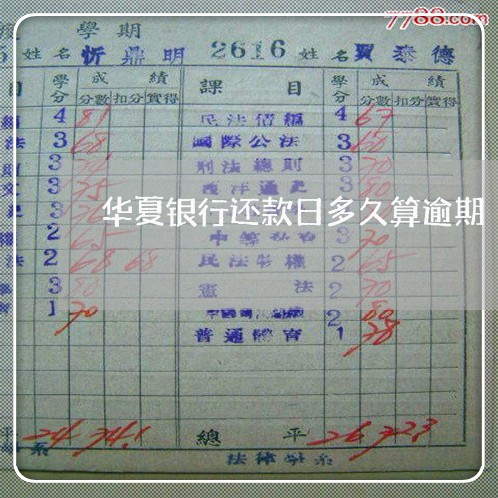 7788.com
學期
姓名 忻鼎明 2616 姓名 賈泰德
目 學分 成績 課目 學分 成績
分數 扣分 實得 分數 扣分 實得
4 81 民法債編 4 67
法 3 68 國際公法 3 60
3 刑法總則 3 70
文 3 75 西洋通史 3 80
華夏银行还款日多久算逾期
2 65 3 70
法 2 68 68 民法物權 2 65
3 80 憲法 2 70
1 70 2 80
普通體育 1 78
平 24 74.1 總平 26 72.3
系 法律學系